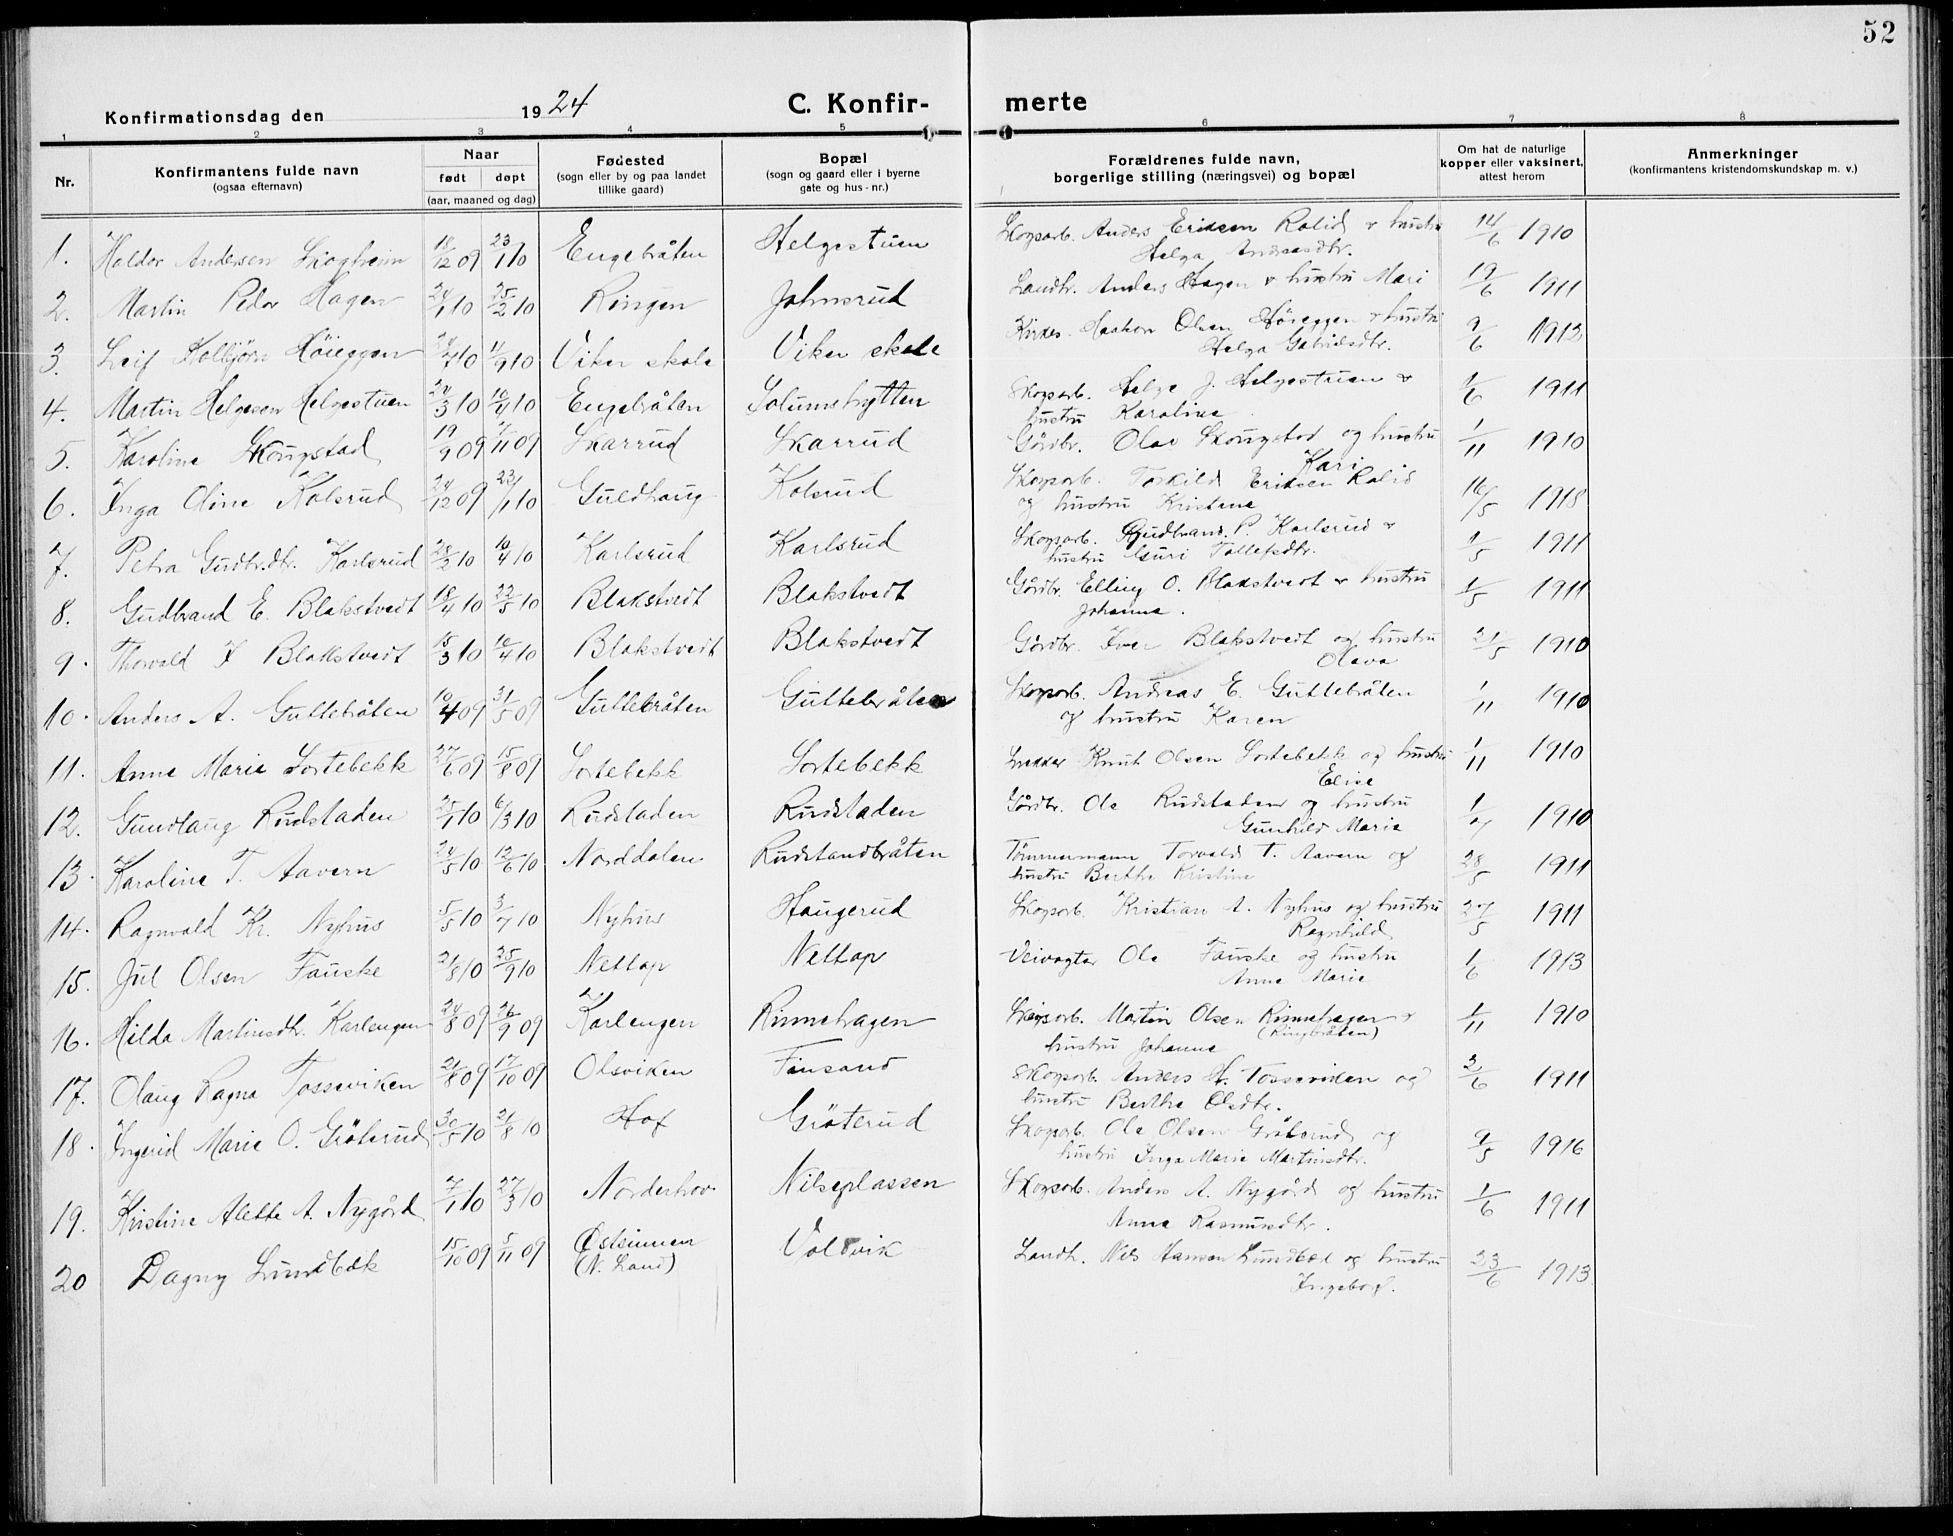 52
Konfirmationsdag den 1924 C. Konfirmerte
1 2 3 4 5 6 7 8
Nr.
Konfirmantens fulde navn
(ogsaa efternavn)
Naar
født døpt
(aar, maaned og dag)
Fødested
(sogn eller by og paa landet
tillike gaard)
Bopæl
(sogn og gaard eller i byerne
gate og hus-nr.)
Forældrenes fulde navn,
borgerlige stilling (næringsvei) og bopæl
Om hat de naturlige
kopper eller vaksinert,
attest herom
Anmerkninger
(konfirmantens kristendomskundskap m. v.)
1. Haldor Andersen Skogheim 18/12 09 23/1 10 Engebråten Helgestuen Skogsarb. Anders Eriksen Rolid & hustru 14/6 1910
Helga Andreasdtr.
2. Martin Peder Hagen 24/1 10 25/2 10 Ringen Johnsrud Landh. Anders Hagen & hustru Mari 19/6 1911
3. Leif Kolbjörn Höieggen 7 10 11/9 10 Viker skole Viker skole Kirkes. Haakon Olsen Höieggen & hustru 9/6 1913
Helga Gabrielsdtr.
4. Martin Helgesen Helgestuen 24/3 10 10/4 10 Engebråten Solumshytten Skogsarb. Helge J. Helgestuen & 1/6 1911
hustru Karoline
5. Karoline Skougstad 19/9 09 7/11 09 Skarrud Skarrud Gårdbr. Olav Skougstad og hustru 1/11 1910
Kari
6. Inga Oline Kolsrud 24/12 09 23/1 10 Guldhaug Kolsrud Skogsarb. Torkild Eriksen Rolid 16/5 1918
og hustru Kristane
7. Petra Gudbr.dtr. Karlsrud 28/2 10 10/4 10 Karlsrud Karlsrud Skogsarb. Gudbrand P. Karlsrud & 1/5 1911
hustru Guri Tollefsdtr.
8. Gudbrand E. Blakstvedt 18/4 10 22/5 10 Blakstvedt Blakstvedt Gårdbr. Elling O. Blakstvedt & hustru 1/5 1911
Johanna.
9. Thorvald I Blakstvedt 15/3 10 10/4 10 Blakstvedt Blakstvedt Gårdbr. Iver Blakstvedt og hustru 21/5 1910
Olava
10. Anders A. Guttebråten 10/4 09 31/5 09 Guttebråten Guttebråten Skogsarb. Andreas E. Guttebråten 1/11 1910
og hustru Karen
11. Anna Marie Sortebekk 27/6 09 15/8 09 Sortebekk Sortebekk Knut Olsen Sortebekk og hustru 1/11 1910
Elise
12. Gundlaug Rudstaden 25/1 10 6/3 10 Rudstaden Rudstaden Gårdbr. Ole Rudstaden og hustru 1/7 1910
Gunhild Marie
13. Karoline T. Aavern 24/5 10 12/6 10 Norddalen Rudstandbråten Tömmermann Torvald T. Aavern og 28/5 1911
hustru Berthe Kristine
14. Ragnvald Kr. Nyhus 5/5 10 3/7 10 Nyhus Haugerud Skogsarb. Kristian A. Nyhus og hustru 27/5 1911
Ragnhild
15. Jul Olsen Fauske 21/8 10 25/9 10 Nettop Nettop Veivogter Ole Fauske og hustru 1/6 1913
Anne Marie
16. Hilda Martinsdtr. Karlengen 24/8 09 26/9 09 Karlengen Rinnehagen Skogsarb. Martin Olsen Rinnehagen & 1/11 1910
(Ringbråten)
hustru Johanne
17. Olaug Ragna Tosseviken 21/8 09 17/10 09 Olsviken Finsand Skogsarb. Anders H. Tosseviken og 3/6 1911
hustru Berthe Olsdtr.
18. Ingerid Marie O. Gröterud 30/5 10 21/8 10 Hof Gröterud Skogsarb. Ole Olsen Gröterud og 9/5 1916
hustru Inga Marie Martinsdtr.
19. Kristine Alette A. Nygård 7/1 10 27/3 10 Norderhov Nilseplassen Skogsarb. Anders A. Nygård og hustru 1/6 1911
Anna Rasmusdtr.
20 Dagny Lundbæk 15/10 09 5/11 09 Østsinnen Voldvik Landh. Nils Hansen Lundbæk og hustru 23/6 1913
(N. Land)
Ingeborg.